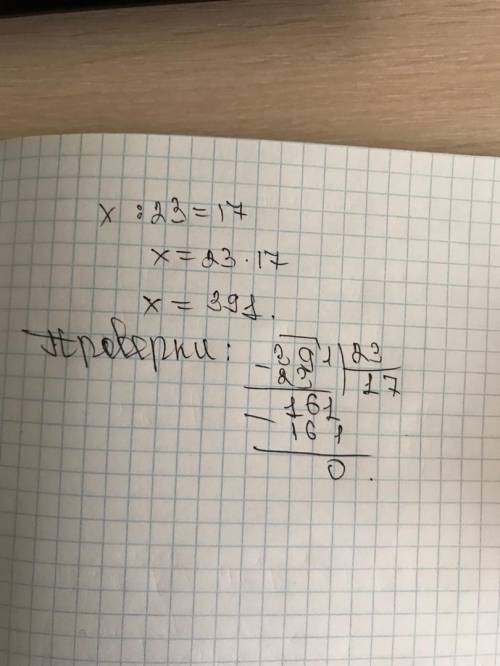 x : 23 = 17
x = 23 · 17
x = 391.
Проверки:
- 391 | 23
23 | 17
- 161
161
0.